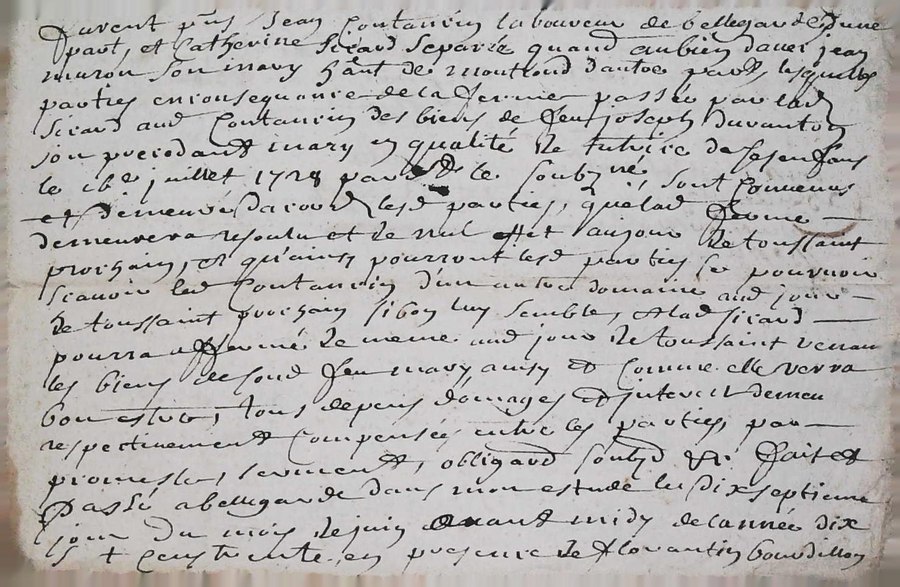 Furent p̄ns Jean Contancin laboureur de bellegarde d'une
part, et Catherine Sicard separée quand aubien daver jean
muron son mary h̄ant de montrond dautre part, lesquelles
parties enconsequance de la ferme passée par lad
Sicard aud Contancin des biens de feu joseph duranton
son precedant mary en qualité de tutrice de ses enfans
le juillet 1728 par le soubzné, sont convenus
et demeuré dacord lesd parties, quelad ferme
demeurera resolu et de nul effet aujour de toussaint
prochain, et qu'ainsy pourront lesd parties se pourvoir
scavoir led Contancin d'un autre domaine aud jour
de toussaint prochain sibon luy semble, et lad sicard
pourra affermé le meme aud jour de toussaint venan
les biens de sond feu mary ainsy et comme elle verra
bon estre, tous depens domages et interest demeu
respectivement compensée entre les parties, par
promesse, serment, obligaōn soubzd &c. fait et
Passé a bellegarde dans mon estude le dix septieme
jour du mois de juin avant midy de lannée dix
sept cens trente en presence de florantin bourdillon